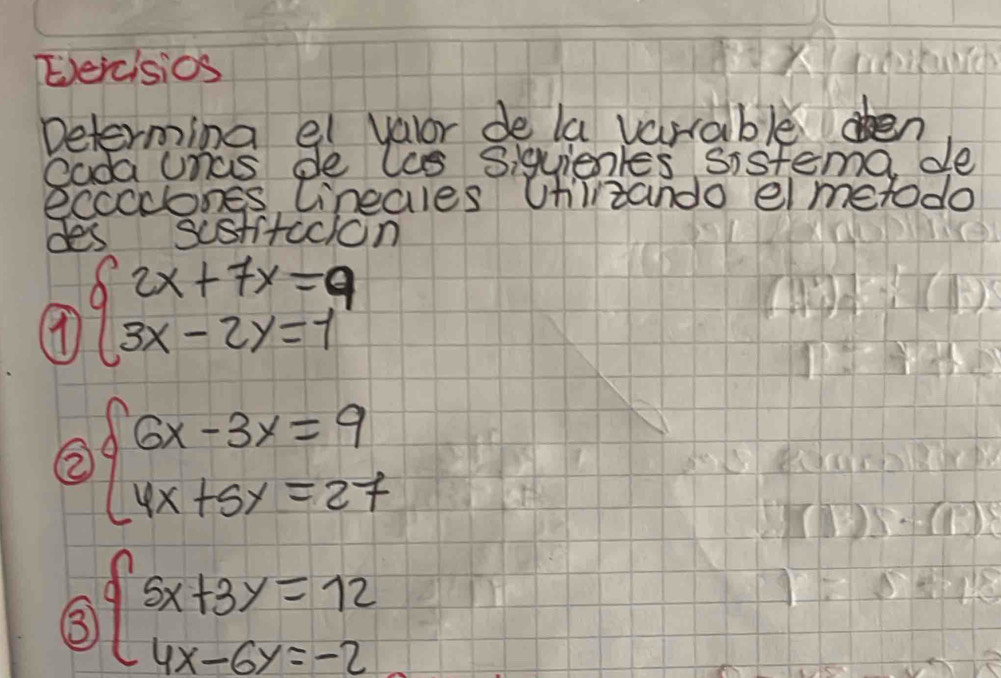 Ejercisios
Determina el valor de la variable en
cada unas de las siguientes sistema de
ecuaciones lineales utilizando el metodo
des sustitucion
① { 2x + 7y = 9
3x - 2y = 1
② { 6x - 3y = 9
4x + 5y = 27
③ { 5x + 3y = 12
4x - 6y = -2